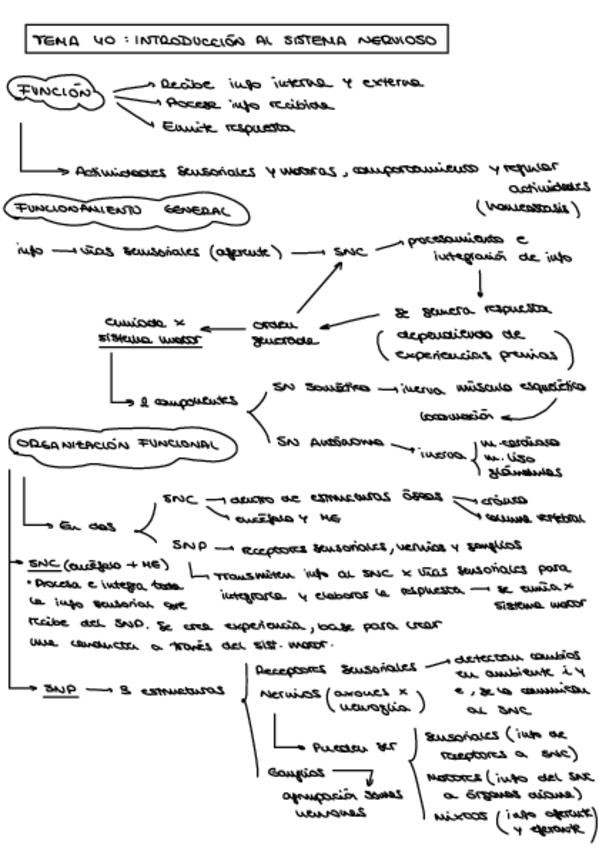 TEMA 40: INTRODUCCIÓN AL SISTEMA NERVIOSO
FUNCIÓN
Recibe info interna y externa
Procesa info recibida
Emite respuesta
Actividades sensoriales y motoras, comportamiento y regular
actividades
(homeostasis)
FUNCIONAMIENTO GENERAL
info → vías sensoriales (aferente) → SNC → procesamiento e
integración de info
se genera respuesta
(dependiendo de
experiencias previas)
orden
generada
enviada x
sistema motor
2 componentes
SN Somático → inerva músculo esquelético
locomoción
SN Autónomo → inerva
m. cardiaco
m. liso
glándulas
ORGANIZACIÓN FUNCIONAL
En dos
SNC → dentro de estructuras óseas
cráneo
columna vertebral
encéfalo y ME
SNP → receptores sensoriales, nervios y ganglios
Transmiten info al SNC x vías sensoriales para
integrarla y elaborar la respuesta → se envía x
sistema motor
SNC (encéfalo + ME)
• Procesa e integra toda
la info sensorial que
recibe del SNP. Se crea experiencia, base para crear
una conducta a través del sist. motor.
SNP → 3 estructuras
Receptores sensoriales → detectan cambios
en ambiente i y
e, se lo comunican
al SNC
Nervios (axones x
neuroglia)
Pueden ser
Sensoriales (info de
receptores a SNC)
Motores (info del SNC
a órganos diana)
Mixtos (info aferente
y eferente)
Ganglios
agrupación somas
neuronas